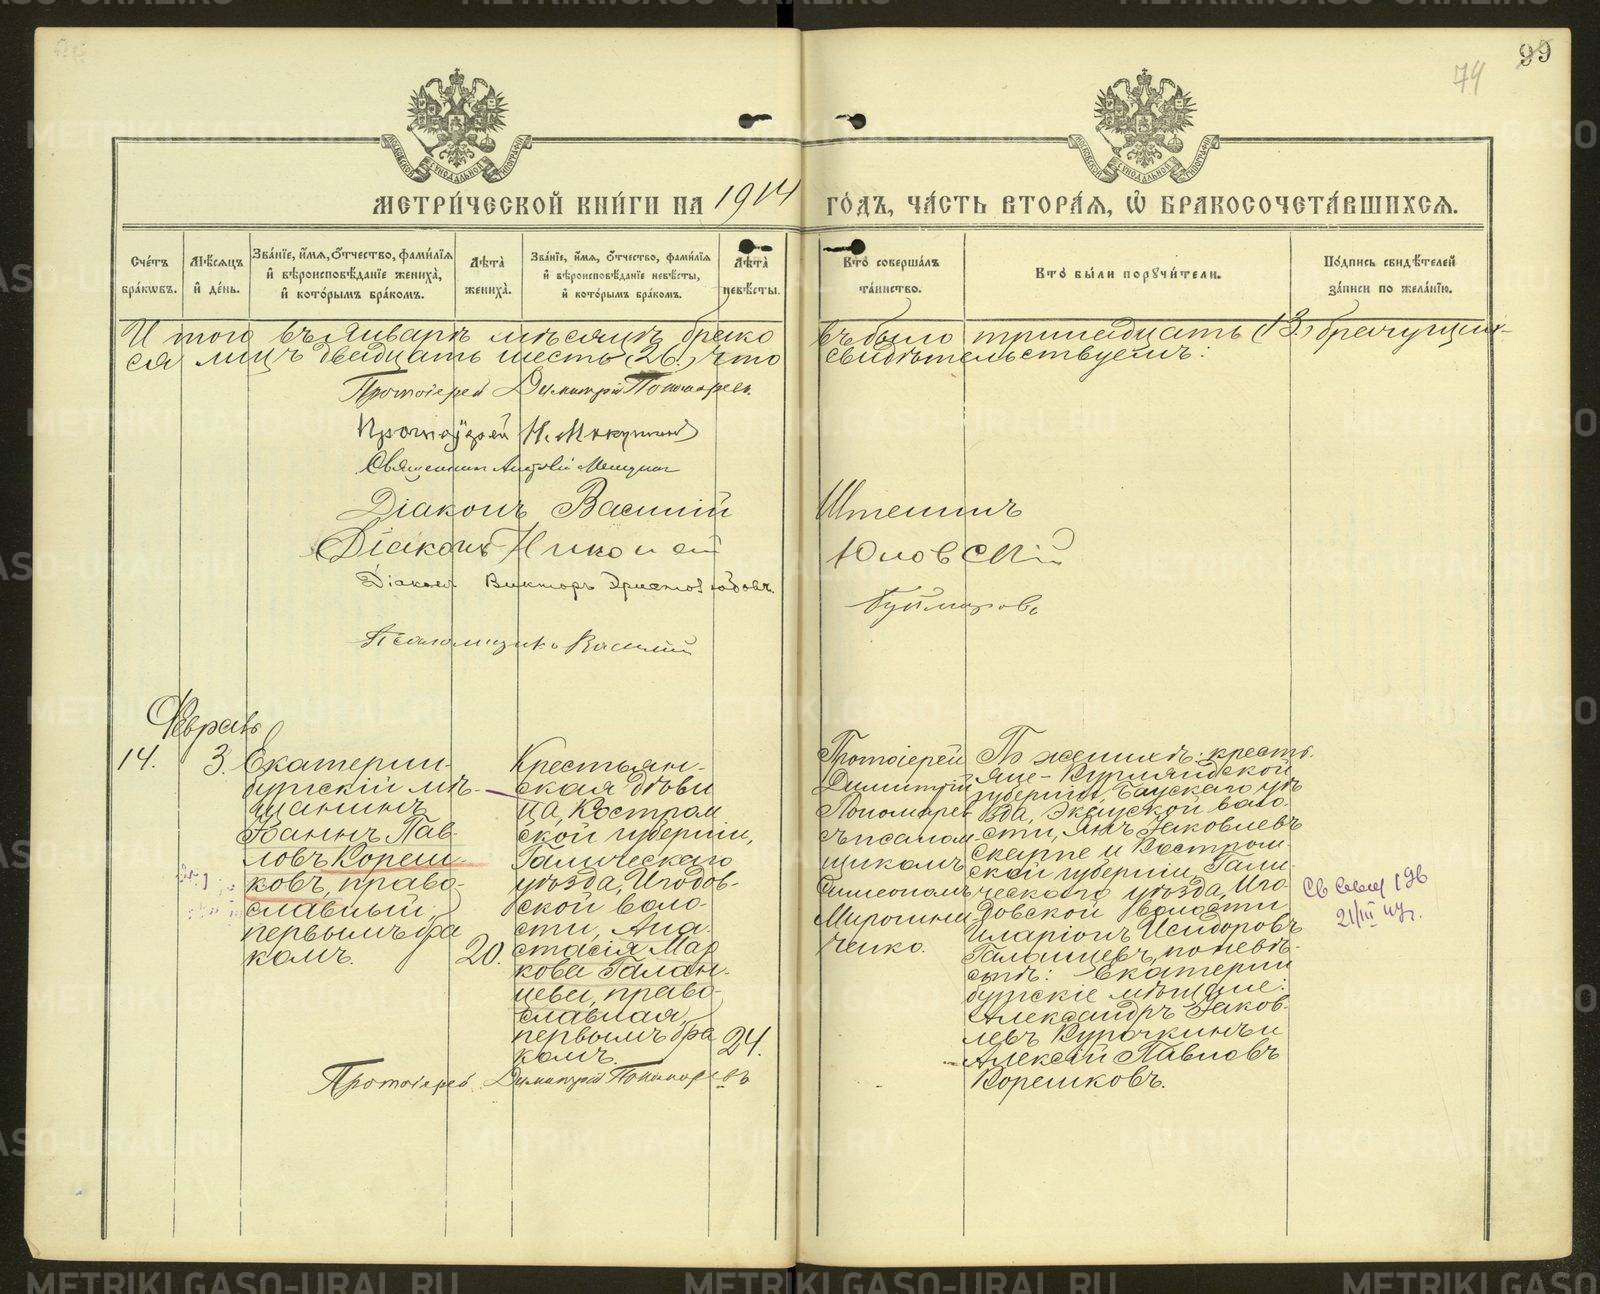 99
74
МЕТРИ́ЧЕСКОЙ КНИ́ГИ НА 1914 ГО́ДЪ, ЧА́СТЬ ВТОРА́Я, Ѽ БРАКОСОЧЕТА́ВШИХСЯ.
Сче́тъ бра́кѡвъ.
Мѣ́сяцъ и҆ де́нь.
Зва́нїе, и҆́мя, ѻ҆́тчество, фами́лїя и҆ вѣроисповѣ́данїе жениха̀, и҆ кото́рымъ бра́комъ.
Лѣта̀ жениха̀.
Зва́нїе, и҆́мя, ѻ҆́тчество, фами́лїя и҆ вѣроисповѣ́данїе невѣ́сты, и҆ кото́рымъ бра́комъ.
Лѣта̀ невѣ́сты.
Кто̀ соверша́лъ та́инство.
Кто̀ бы́ли порꙋчи́тели.
По́дпись свидѣ́телей за́писи по жела́нїю.
Итого въ Январѣ мѣсяцѣ браковъ было тринадцать (13.) брачущих-
ся лицъ двадцать шесть (26.) что свидѣтельствуемъ:
Протоіерей Димитрій Пономаревъ
Протоіерей Н.
Священникъ
Діаконъ Василій
Діаконъ Николай Юловскій
Діаконъ Викторъ
Псаломщикъ Василій
Февраль
14.
3.
Екатерин-
бургскій мѣ-
щанинъ
Іоаннъ Пав-
ловъ Кореш
ковъ, право-
славный,
первымъ бра
комъ.
20.
Крестьян-
ская дѣви
ца, Костром
ской губерніи,
Галическаго
уѣзда, Игодов-
ской воло-
сти, Ана-
стасія Мар
кова Галан-
цева, право-
славная,
первымъ бра
комъ.
24.
Протоіерей Димитрій Пономаревъ
Протоіерей
Димитрій
Пономарев
съ псалом-
щикомъ
Симеономъ
Мирошни
ченко.
По женихѣ: кресть
яне – Курляндской
губерніи, Баускаго уѣ
зда, Экауской воло
сти, Янъ Яковлевъ
Скарпе и Костром-
ской губерніи, Гали
ческаго уѣзда, Иго
довской волости
Иларіонъ Исидоровъ
Галанцевъ, по невѣ-
стѣ: Екатерин
бургскіе мѣщане:
Александръ Яков
левъ Курочкинъ и
Алексѣй Павловъ
Корешковъ.